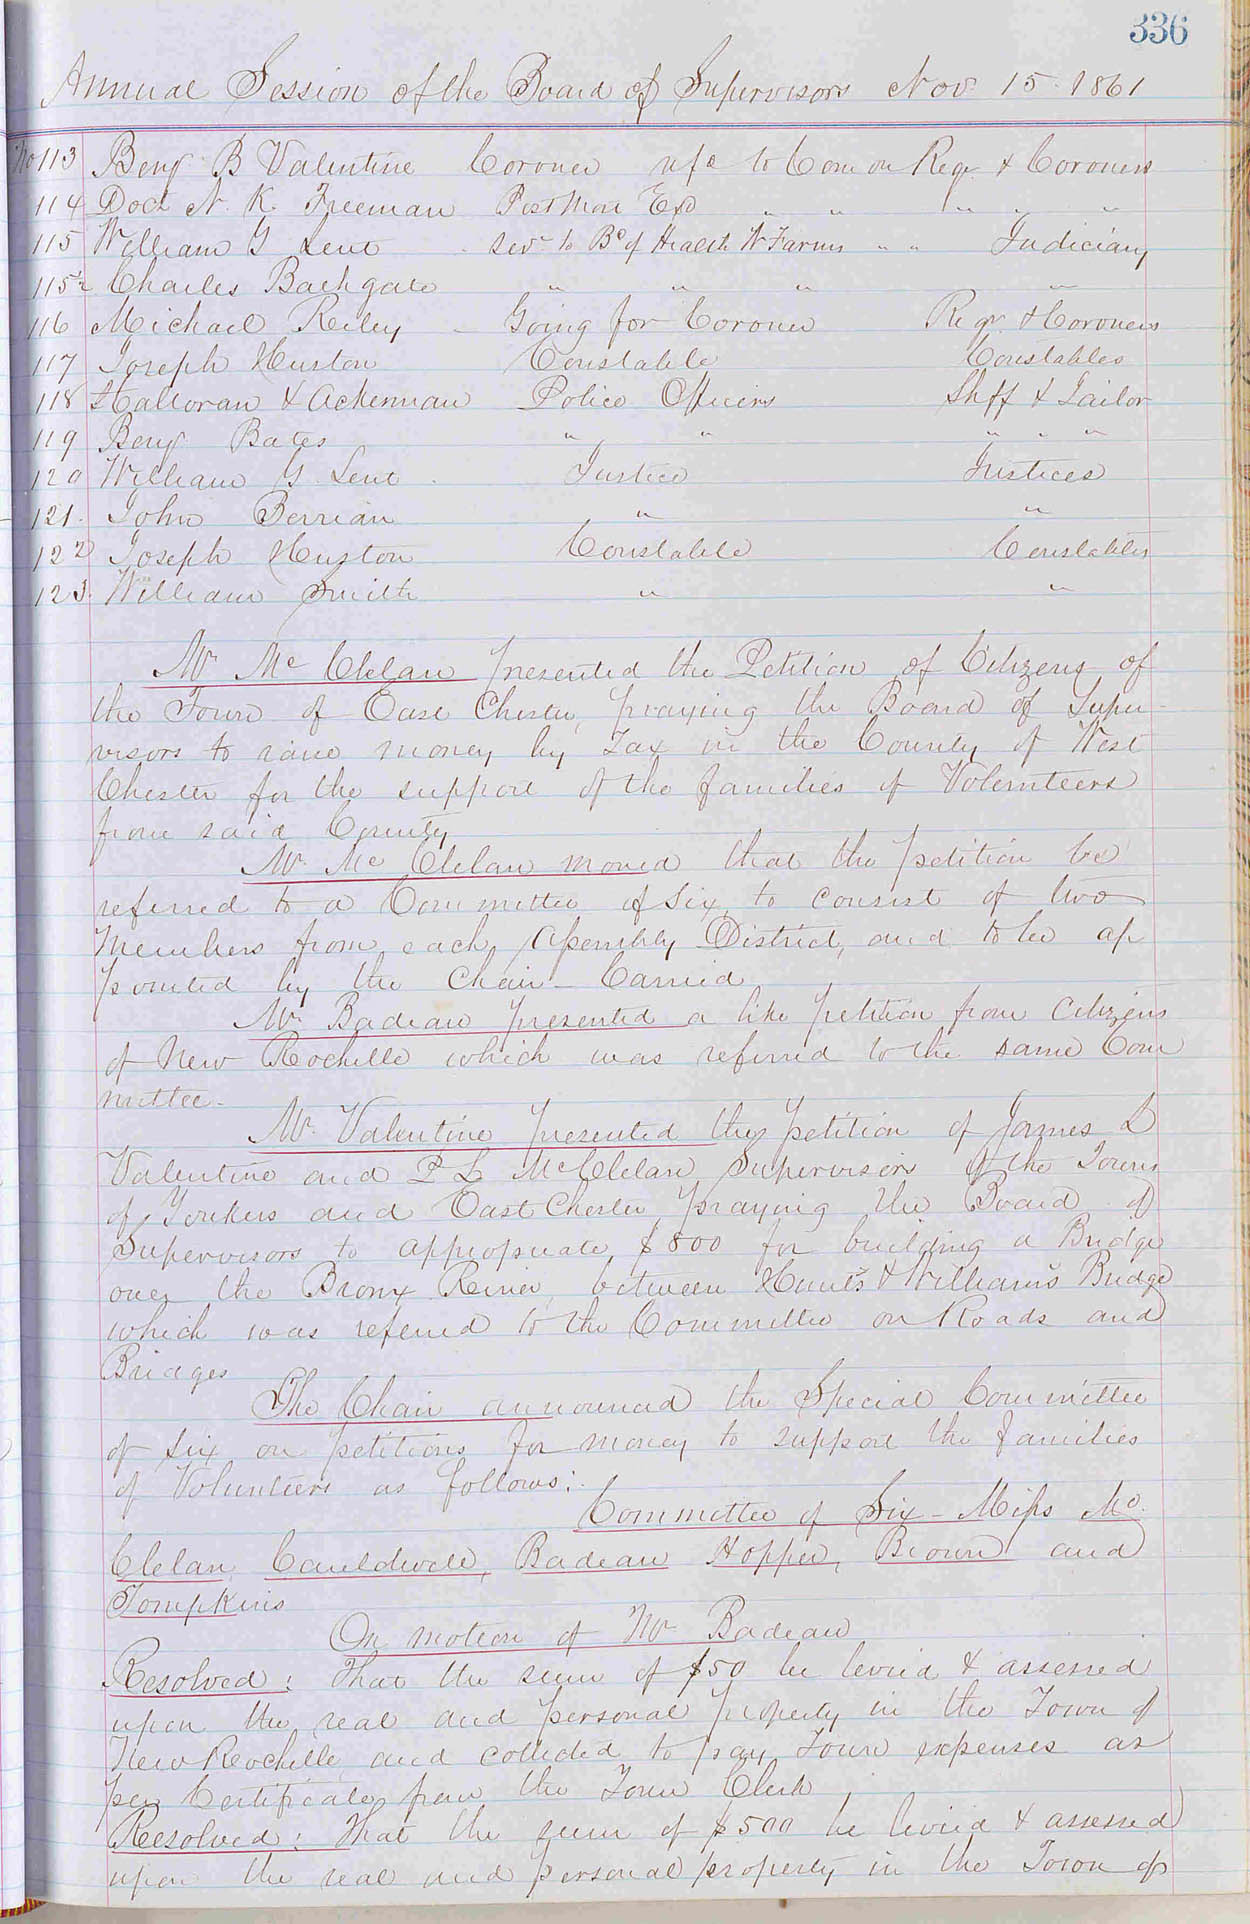 336
Annual Session of the Board of Supervisors Nov 15 1861
No 113 Benj B Valentine Coroner refd to Com on Regr & Coroners
114 Doct N. K. Freeman Post Mor Exd " " " " "
115 William G Lent Serv to Bd of Health W Farms " " Judiciary
115½ Charles Bathgate " " " "
116 Michael Reiley Going for Coroner Regr & Coroners
117 Joseph Huston Constable Constables
118 Halloran & Ackerman Police Officers Shff & Jailor
119 Benj Bates " " " " "
120 William G. Lent Justice Justices
121. John Berrian " "
122 Joseph Huston Constable Constables
123. William Smith " "
Mr McClelan presented the Petition of Citizens of
the Town of East Chester, praying the Board of Super-
visors to raise money by Tax in the County of West
Chester for the support of the families of Volenteers
from said County
Mr. McClelan moved that the petition be
referred to a Committee of Six, to consist of two
Members from each Assembly District, and to be ap
pointed by the Chair - Carried
Mr. Badeau presented a like petition from Citizens
of New Rochelle which was referred to the same Com
mittee -
Mr. Valentine presented the petition of James L
Valentine and P L McClelan Supervisors of the Towns
of Yonkers and East Chester praying the Board of
Supervisors to appropriate $800 for building a Bridge
over the Bronx River, between Hunt's & William's Bridge
which was refered to the Committee on Roads and
Bridges
The Chair announced the Special Committee
of Six on petitions for money to support the families
of Volunteers as follows:
Committee of Six - Messs Mc
Clelan, Cauldwell, Badeau Hopper, Brown and
Tompkins
On motion of Mr Badeau
Resolved: That the sum of $50 be levied & assessed
upon the real and personal property in the Town of
New Rochelle and collected to pay Town expenses as
per Certificate from the Town Clerk
Resolved: That the sum of $500 be levied & assessed
upon the real and personal property in the Town of